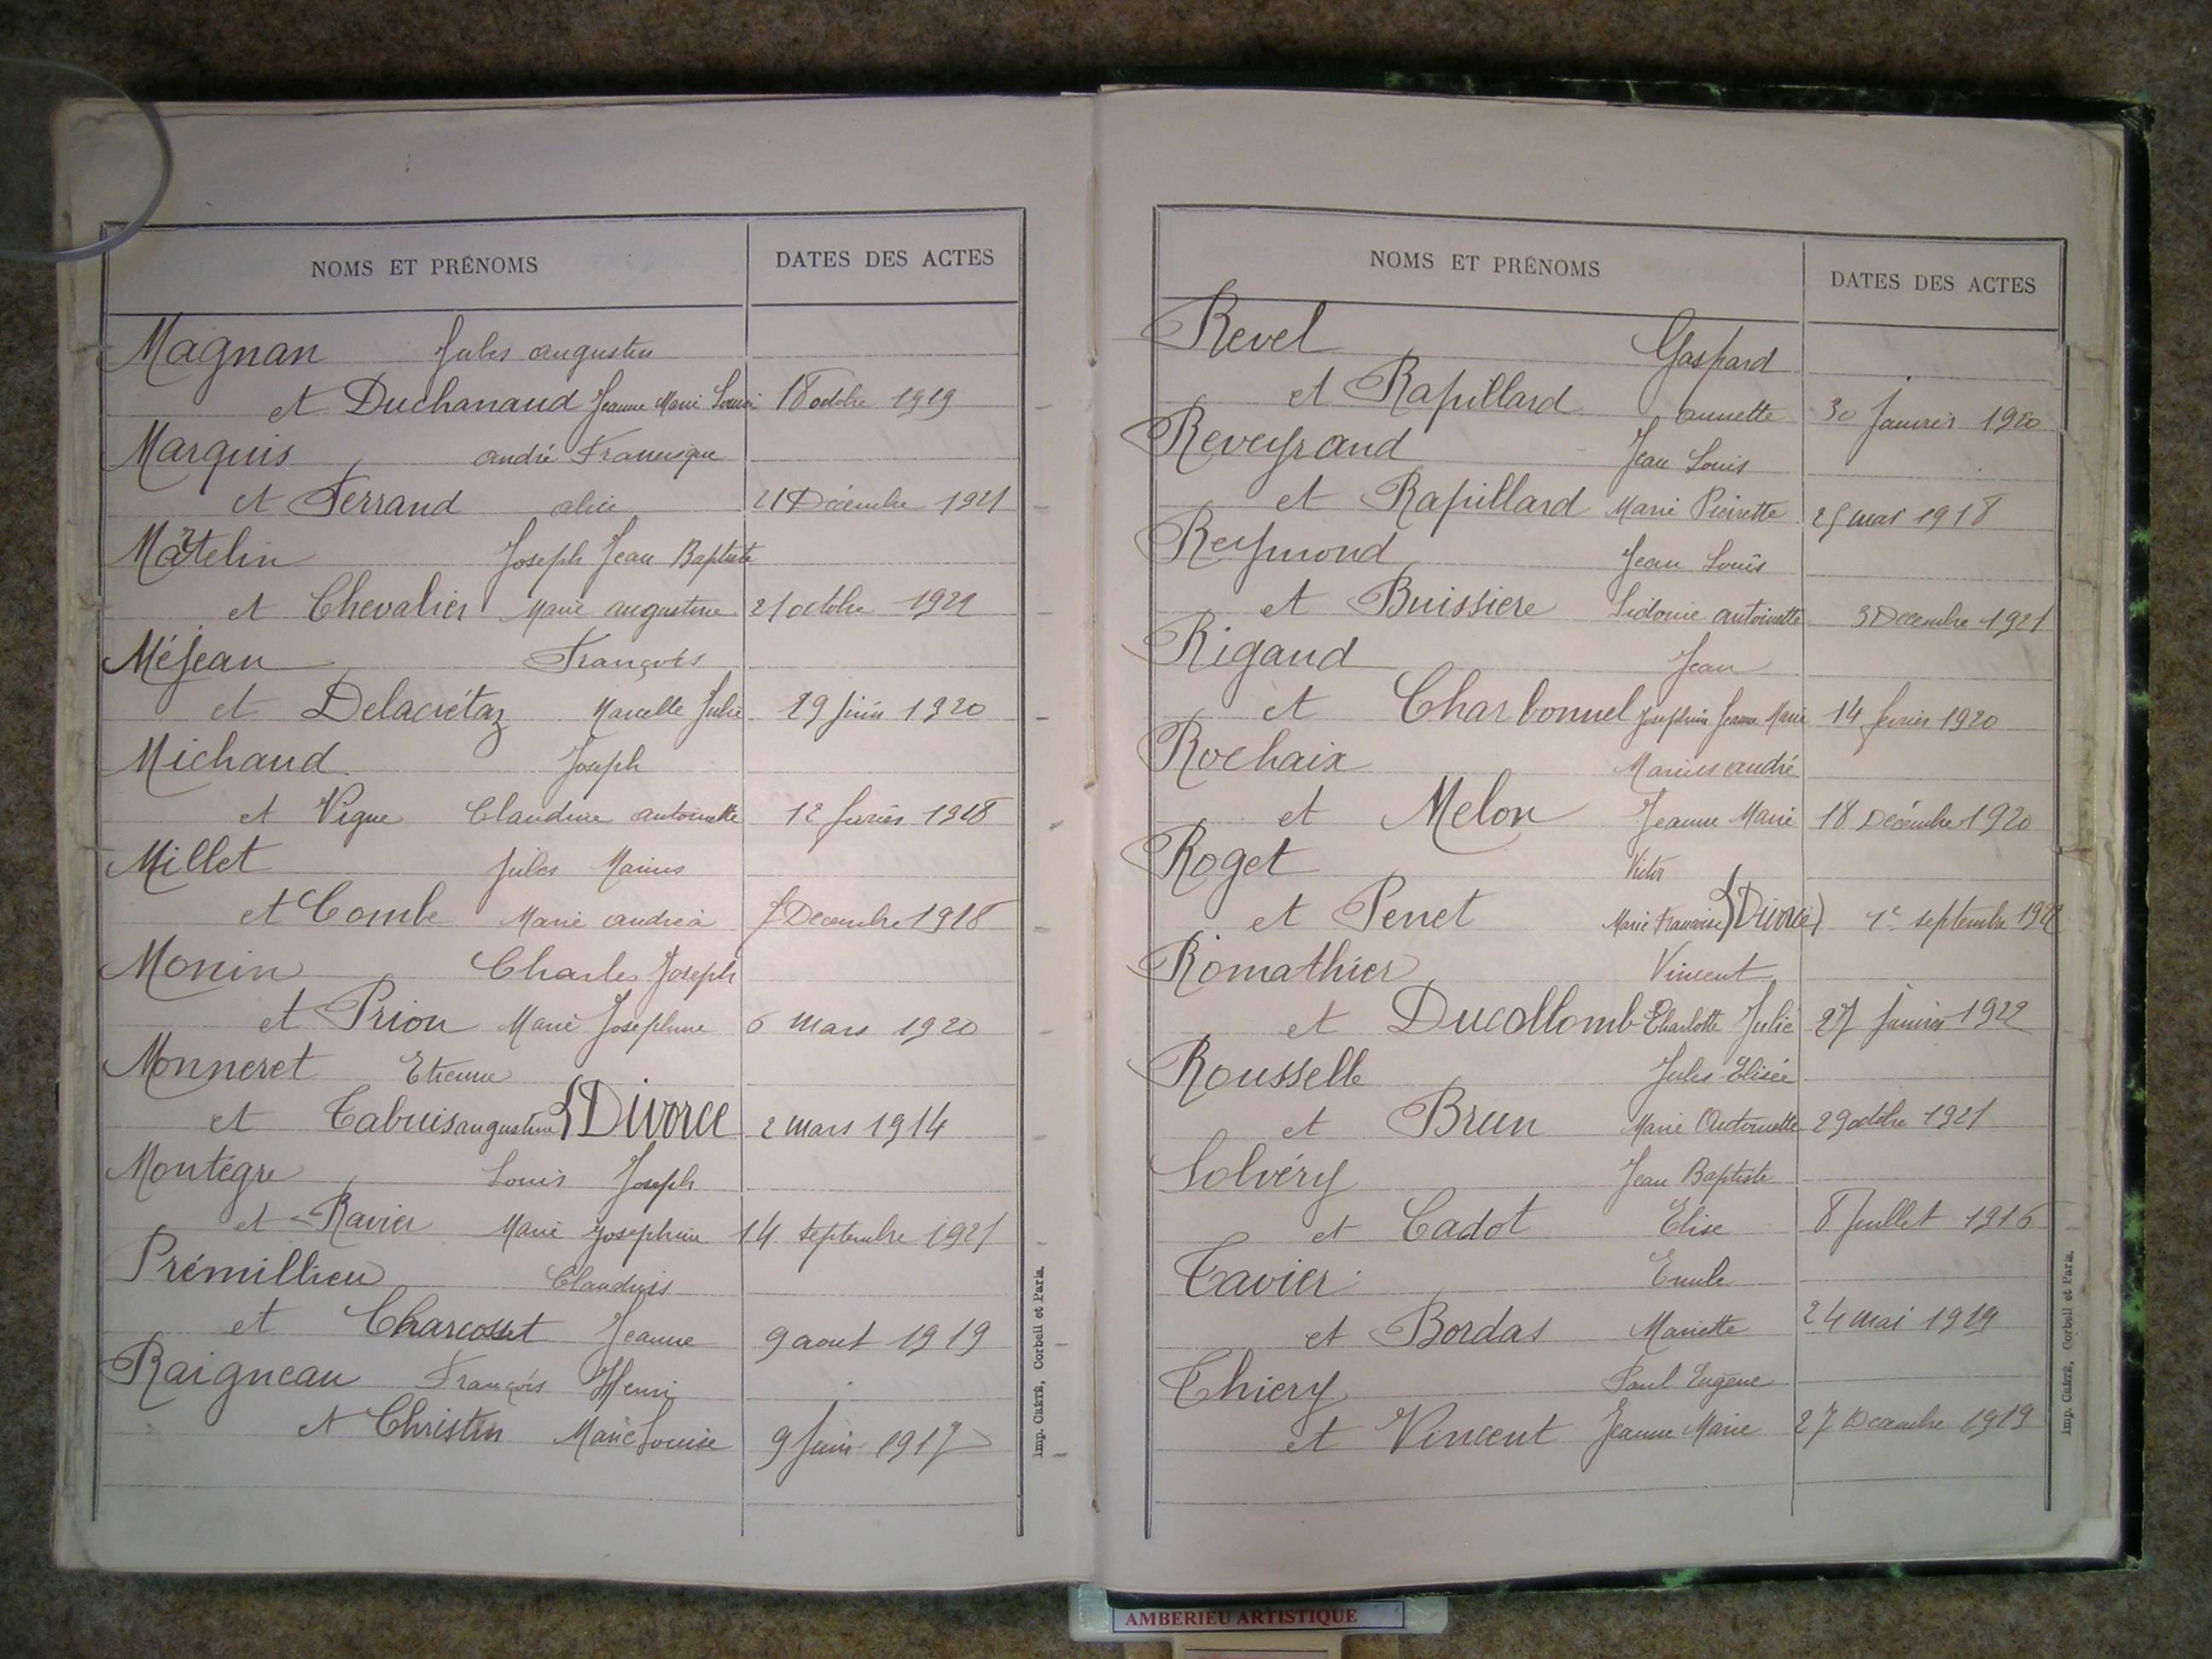 NOMS ET PRÉNOMS DATES DES ACTES
Magnan Jules augustin
et Duchanaud Jeanne Marie Louise 18 octobre 1919
Marquis andré Francisque
et Ferrand alice 21 Décembre 1921
Martelin Joseph Jean Baptiste
et Chevalier Marie augustine 21 octobre 1921
Méjean François
et Delacrétaz Marcelle Julie 29 juin 1920
Michaud Joseph
et Vigne Claudine antoinette 12 février 1918
Millet Jules Marius
et Combe Marie andréa 7 Décembre 1918
Monin Charles Joseph
et Prion Marie Josephine 6 Mars 1920
Monneret Etienne
et Tabuis augustine } Divorce 2 mars 1914
Montégre Louis Joseph
et Ravier Marie Josephine 14 septembre 1921
Prémillieu Claudius
et Charcosset Jeanne 9 aout 1919
Raigneau François Henri
et Christin Marie Louise 9 Juin 1917
Imp. Corbeil et Paris.
NOMS ET PRÉNOMS DATES DES ACTES
Revel Gaspard
et Rapillard annette 30 Janvier 1920
Reveyrand Jean Louis
et Rapillard Marie Pierrette 25 mai 1918
Reymond Jean Louis
et Buissiere Sidonie antoinette 3 Décembre 1921
Rigaud Jean
et Charbonnel Josephine Jeanne Marie 14 février 1920
Rochaix Marius andré
et Melon Jeanne Marie 18 Décembre 1920
Roget Victor
et Penet Marie Francoise } (Divorce) 1e septembre
Romathier Vincent
et Ducollomb Charlotte Julie 27 janvier 1922
Rousselle Jules Elisée
et Brun Marie Antoinette 29 octobre 1921
Solvéry Jean Baptiste
et Cadot Elise 8 Juillet 1916
Tavier Emile
et Bordas Mariette 24 mai 1919
Thiery Paul Eugène
et Vincent Jeanne Marie 27 Décembre 1919
Imp. Corbeil et Paris.
AMBERIEU ARTISTIQUE